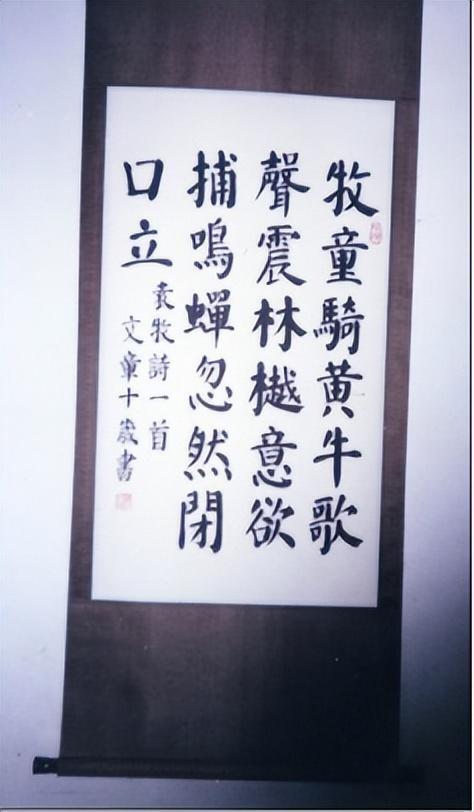 牧童騎黃牛歌
聲震林樾意欲
捕鳴蟬忽然閉
口立
袁牧詩一首
文章十歲書